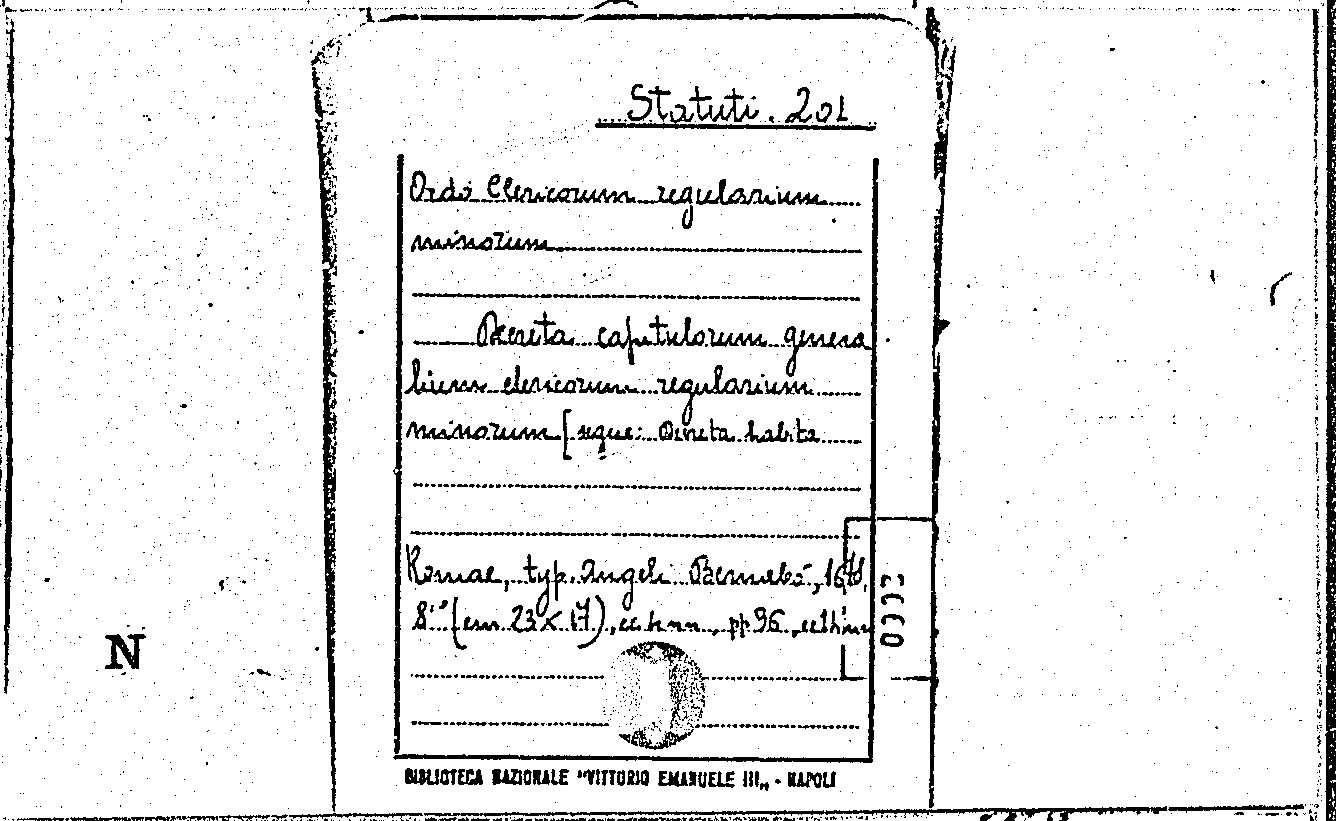 Statuti. 201
Ordo Clericorum regularium
minorum
Decreta capitulorum genera
lium clericorum regularium
minorum [segue: Decreta habita
Romae, typ. Angeli Bernabò,
8° (cm 23 x 17), cc. 4 nn., pp 96
N
BIBLIOTECA NAZIONALE "VITTORIO EMANUELE III„ - NAPOLI